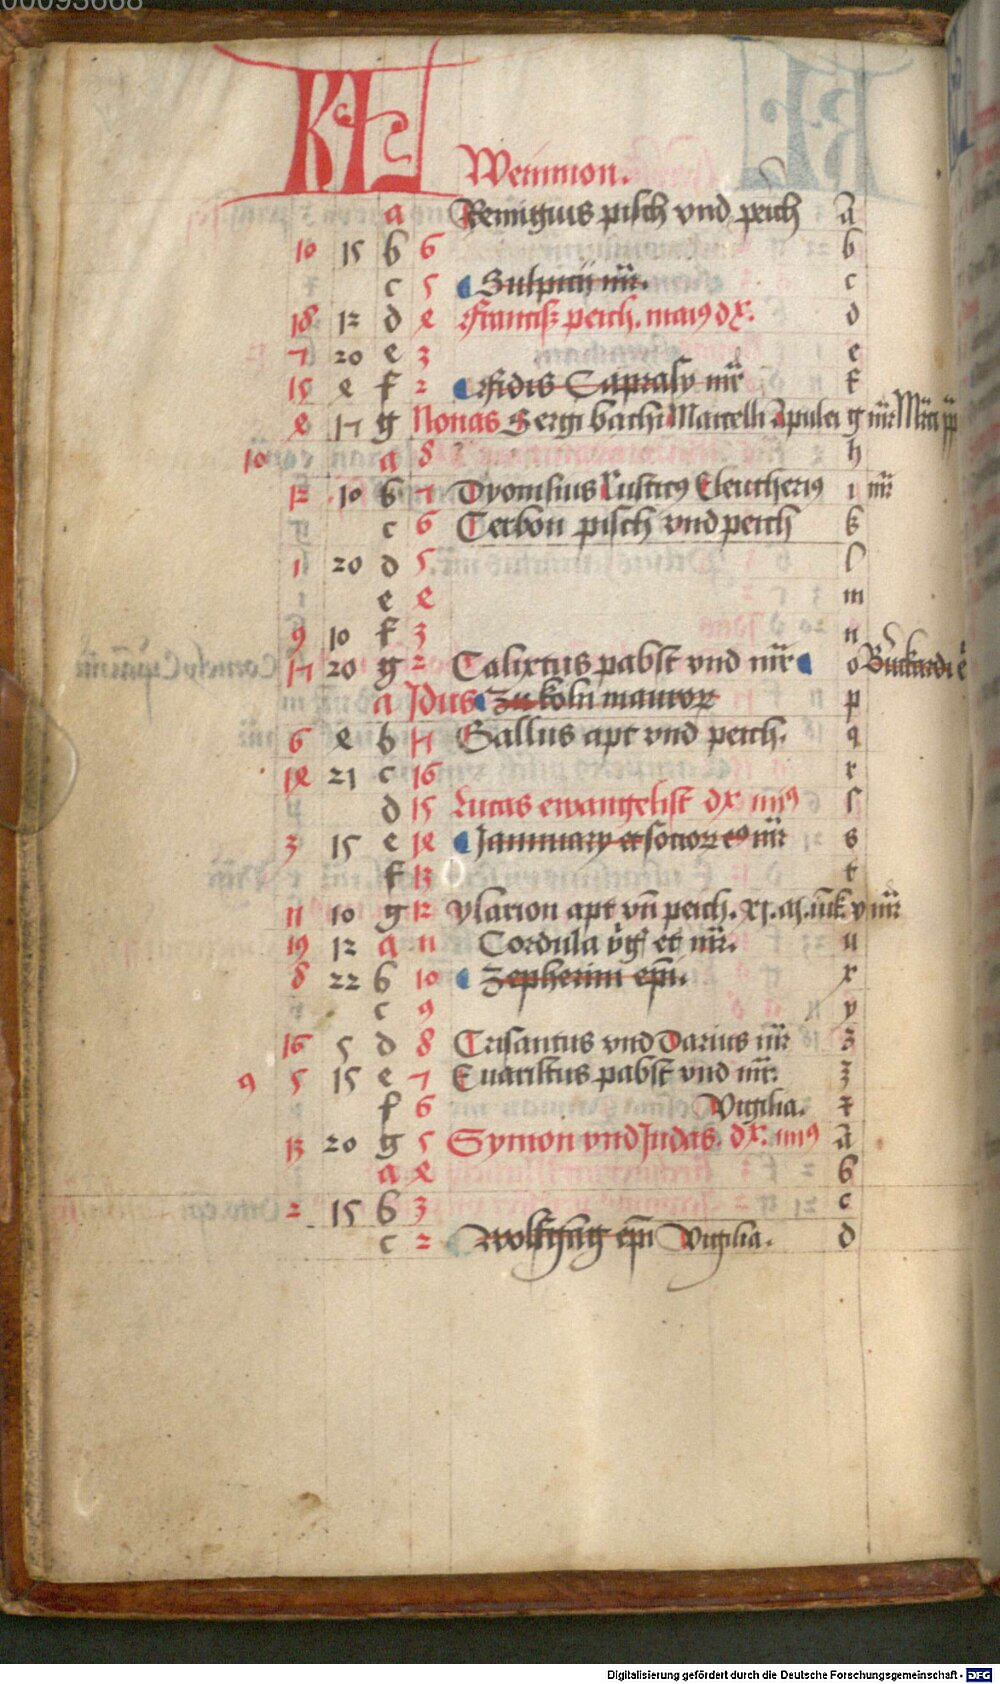 00093668
KL
Weinmon.
a Remigius pisch vnd peich a
10 15 b 6 b
c 5 Sulpicij mr. c
18 12 d 4 Francisc peich. maius dx. d
7 20 e 3 e
15 4 f 2 Fidis mr f
4 17 g Nonas Sergi bachi Marcelli Apulei g mr
10 a 8 h
12 10 b 7 Dyonisius Rusticus Eleutherius i mr
c 6 Cerbon pisch vnd peich k
1 20 d 5 l
e 4 m
9 10 f 3 n
17 20 g 2 Calixtus pabst vnd mr o Burkardi
a Idus Zu köln mauror p
6 4 b 17 Gallus apt vnd peich. q
14 21 c 16 r
d 15 Lucas ewangelist dx s
3 15 e 14 Jannuary et socior mr s
f 13 t
11 10 g 12 ylarion apt vn peich. xj. v mr
19 12 a 11 Cordula et mr. u
8 22 b 10 Zepherini epi. x
c 9 y
16 5 d 8 Crisantus vnd Darius mr z
9 5 15 e 7 Euaristus pabst vnd mr. z
f 6 Vigilia.
13 20 g 5 Symon vnd Judas. dx. a
a 4 b
2 15 b 3 c
c 2 Wolfgang epi Vigilia. d
Digitalisierung gefördert durch die Deutsche Forschungsgemeinschaft - DFG